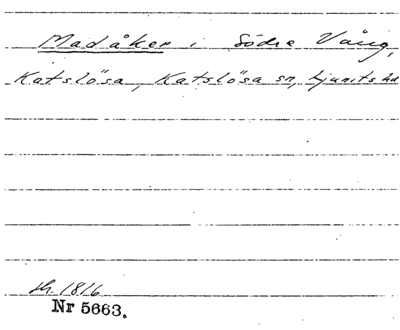 Madåker i Södra Vång,
Katslösa, Katslösa sn, Ljunits hd
sk. 1816
Nr 5663.